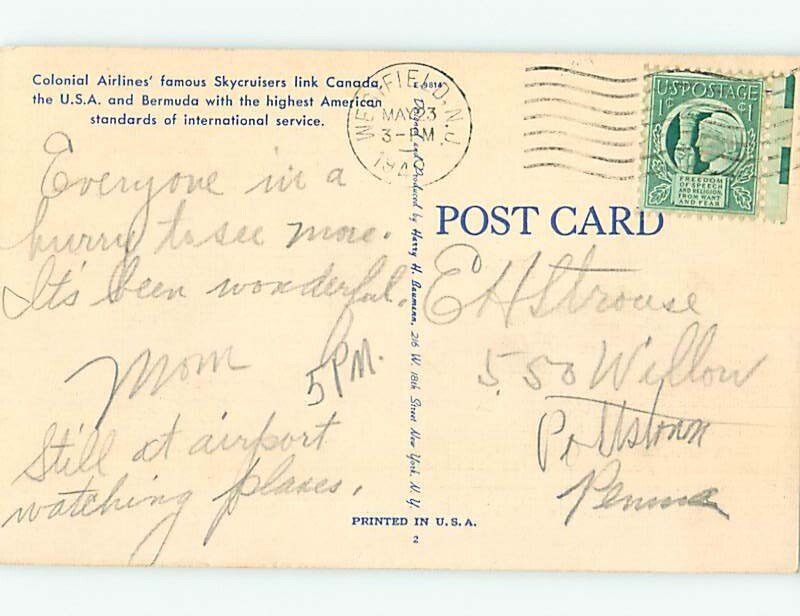 Colonial Airlines' famous Skycruisers link Canada,
the U.S.A. and Bermuda with the highest American
standards of international service.
Everyone in a
hurry to see more.
It's been wonderful.
Mom
5 PM.
Still at airport
watching planes.
E-9814
Designed and Produced by Harry H. Baumann, 216 W. 18th Street New York, N. Y.
WESTFIELD, N.J.
MAY 23
3-PM
U.S. POSTAGE
1¢ ¢1
FREEDOM
OF SPEECH
AND RELIGION,
FROM WANT
AND FEAR
POST CARD
E H Strouse
550 Willow
Pottstown
Penna
PRINTED IN U. S. A.
2